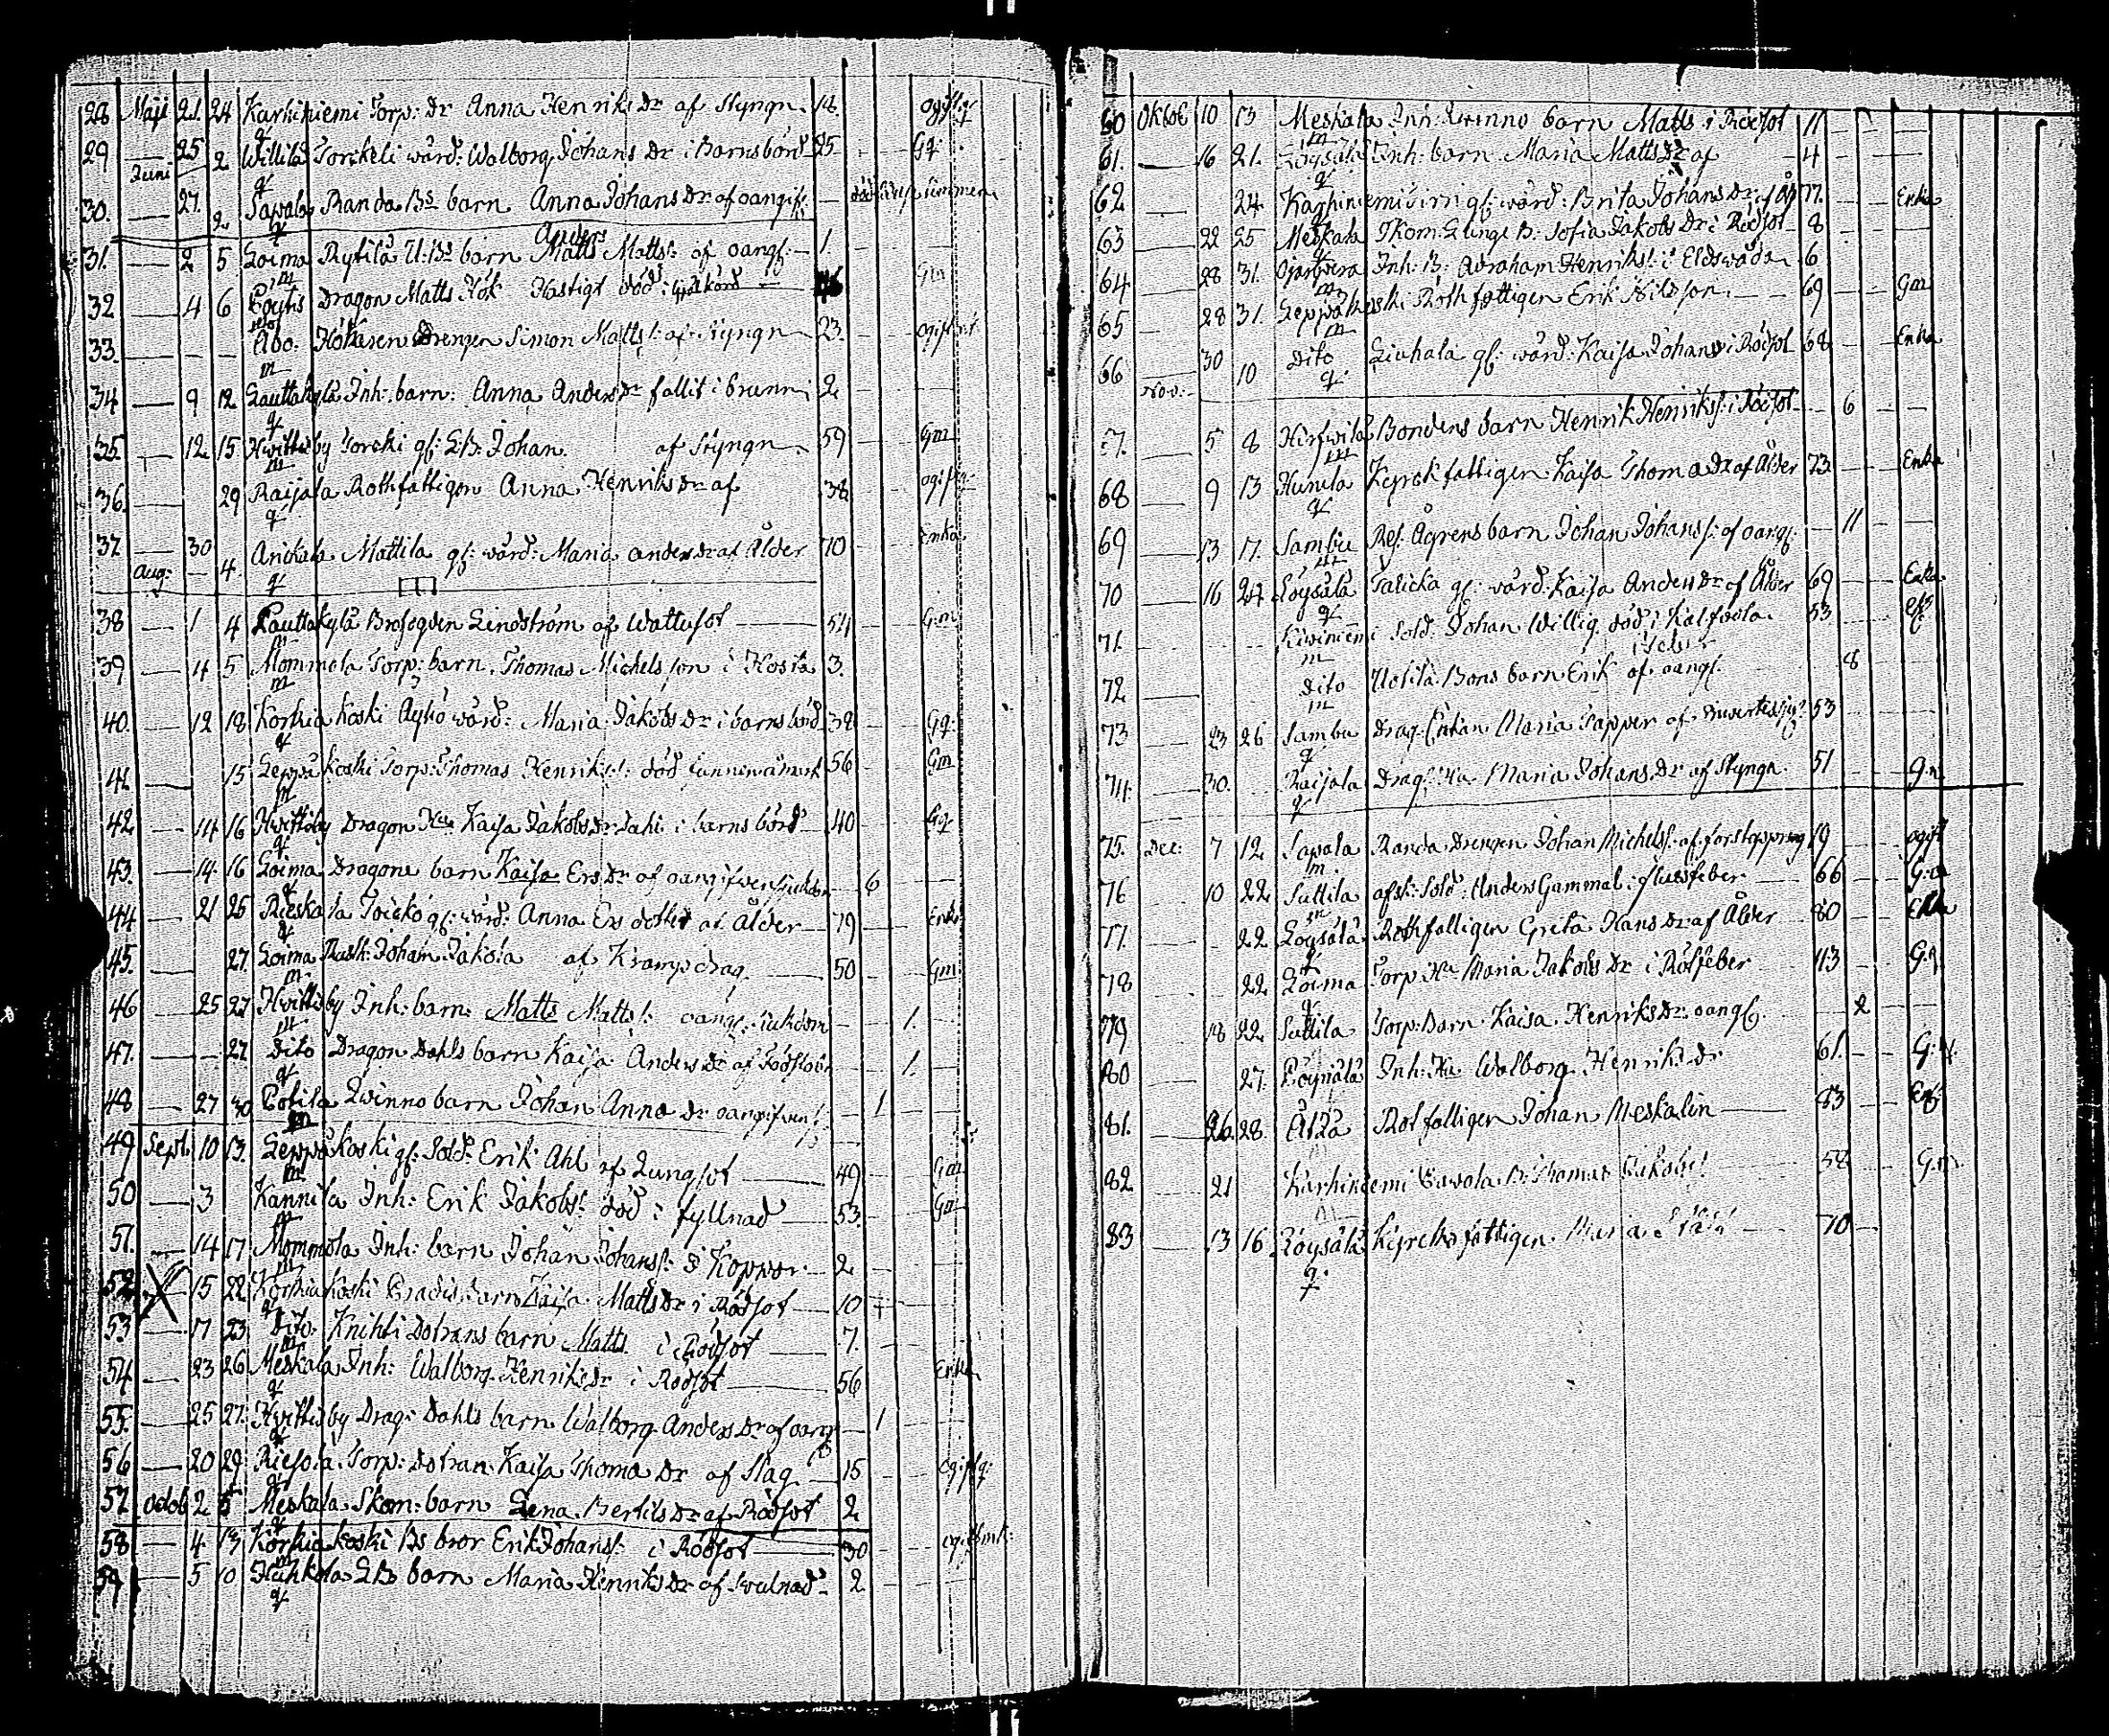 28 Maji 21. 24 Karhiniemi Torp: Dr Anna Henriks Dr af Styngn. 18. ogift q
q
29 — 25 Willila Torikeli wärd: Walborg Johans Dr i Barnsbörd 25 — Gq:
Juni 2
q
30. — 27. Sawala Randa Bs barn Anna Johans Dr af oangif: —
2 q
Anders
31. — 2 5 Loima Rytilä U: Bs barn Matts Matts: af oangf: — 1.
m
32 — 4 6 Dragon Matts Hök Hastigt död: Gm
33. — Åbo: Drengen Simon Matts: af Styngn — 23. ogift
m
34 — 9 12 Lauttakylä Inh: barn: Anna Anders Dr fallit i brunn 2
q
35. — 12 15 Hwittisby q: LB. Johan af Styngn. 59 Gm
m
36. — 29 Raijala Rothfattigon Anna Henriks Dr af 38 ogift q:
q
37 — 30 Anickala Mattila q: wärd: Maria Anders Dr af Ålder 70 Enka
Aug: — 4. q
38 — 1 4 Lauttakylä Lindström af Wattusot — 54 Gm
m
39 — 4 5 Mommola Torp: barn. Thomas Michelsson i Hosta 3.
m
40. — 12 18 Korkiakoski Äykö wärd: Maria Jakobs Dr i barnsbörd 38 Gq:
q
41 — 15 Leppäkoski Torp: Thomas Henriks: död 56 Gm
m
42 — 14 16 Hwittisby Dragon Hu Kaisa Jakobs Dr i barnsbörd 40 Gq
q
43. — 14 16 Loima Dragons barn Kaisa Ers Dr af oangifven sjukdom — 6
q
44 — 21 25 q: wärd: Anna Ers dotter af Ålder — 79 Enka
q
45. — 27. Loima Johan Jakola af Krampdrag. — 50 Gm
m
46 — 25 27 Hwittisby Inh: barn: Matts Matts: oangf: sjukdom — 1.
m
47. — 27. Dito Dragon Dahls barn Kaisa Anders Dr af 1.
q
48 — 27 30 Qwinno barn Johan Anna Dr oangifven — 1
m
49 Sept: 10 13. Leppäkoski q: Sold: Erik Ahl af Lungsot — 49 Gm
m
50 — 3 Kannila Inh: Erik Jakobs: död i fyllnad — 53. Gm
m
51. — 14 17 Mommola Inh: barn Johan Johans: i Koppor. — 2
m
52 X 15 22 Korkiakoski barn Kaisa Matts Dr i Rödsot — 10
q
53 — 17 23 Dito. Knihti Dotrans barn Matts i Rödsot — 7.
m
54 — 23 26 Meskala Inh: Walborg Henriks Dr i Rödsot — 56 Enka
q
55. — 25 27. Hwittisby Drag: Dahls barn Walborg Anders Dr af oang — 1
q
56 — 20 29. Riesola Torp: Dotran Kaisa Thoma Dr af Slag — 15 ogift q:
q
57 Octob 2 5 Meskala Skom: barn Lena Bertils Dr af Rödsot 2
q
58 — 4 13 Korkiakoski Bs bror Erik Johans: i Rödsot — 30 ogift mk:
m
59 — 5 10 Huhkola LB barn Maria Henriks Dr af swulnad 2
q
60 Oktob 10 13 Meskala Inh: Qvinno barn Matts i Rödsot 11
m
61. — 16 21. Löysälä Inh: barn Maria Matts Dr af — 4
q
62 — 24 Karhiniemi q: wärd: Brita Johans Dr af 77. Enka
q
63 — 22 25 Meskala Skom: B: Sofia Jakobs Dr i Rödsot 8
q
64 — 28 31. Ojanperä Inh: B: Abraham Henriks: i Eldswåda 6
m
65 — 28 31. Leppäkoski Rothfattigen Erik Nilsson. — 69 Gm
m
66 — 30 10 Dito Liuhala q: wärd: Kaisa Johans i Rödsot 68 Enka
q
Nov: —
67. 5 8 Hirfwilä Bondens barn Henrik Henriks: i Rödsot — 6
m
68 — 9 13 Hunila Kyrckfattigen Kaisa Thoma Dr af Ålder 73 Enka
q
69 — 13 17. Sambu Res: Ågrens barn Johan Johans: af oangf: — 11
m
70 — 16 24 Löysälä Talicka q: wärd. Kaisa Anders Dr af Ålder 69 Enka
q
71. Kiwiniemi Sold: Johan Willig död i 53
m
72 — Dito Uotila Bons barn Erik af oangf. 8
m
73 — 23 26 Sambu Drag: Enkan Maria Tapper af 53
q
74. — 30. Raijala Drag: Hu Maria Johans Dr af Styngn. 51 G:q
q
75. Dec: 7 12 Sawala Randa Drengen Johan Michels: af förstoppning 19 ogift
m
76 — 10 22 Suttila afsk: Sold: Anders Gammal: feber — 66 G:m
m
77. — 22 Löysälä Rothfattigen Greta Hans Dr af Ålder 80 Enka
q
78 — 22. Loima Torp Hu Maria Jakobs Dr i Rötfeber 43 G:q
q
79 — 18 22. Suttila Torp: Barn Kaisa Henriks Dr oangf: — 2
80 — 27. Löysälä Inh: Hu Walborg Henriks Dr 61. G:q.
81. — 26. 28 Rotfattigen Johan Meskalin — 83
82 21 Karhiniemi Sawola B: Thomas Jakobs: 58 G:m
83 13 16 Löysälä Kyrcksfattigen Maria 70
q